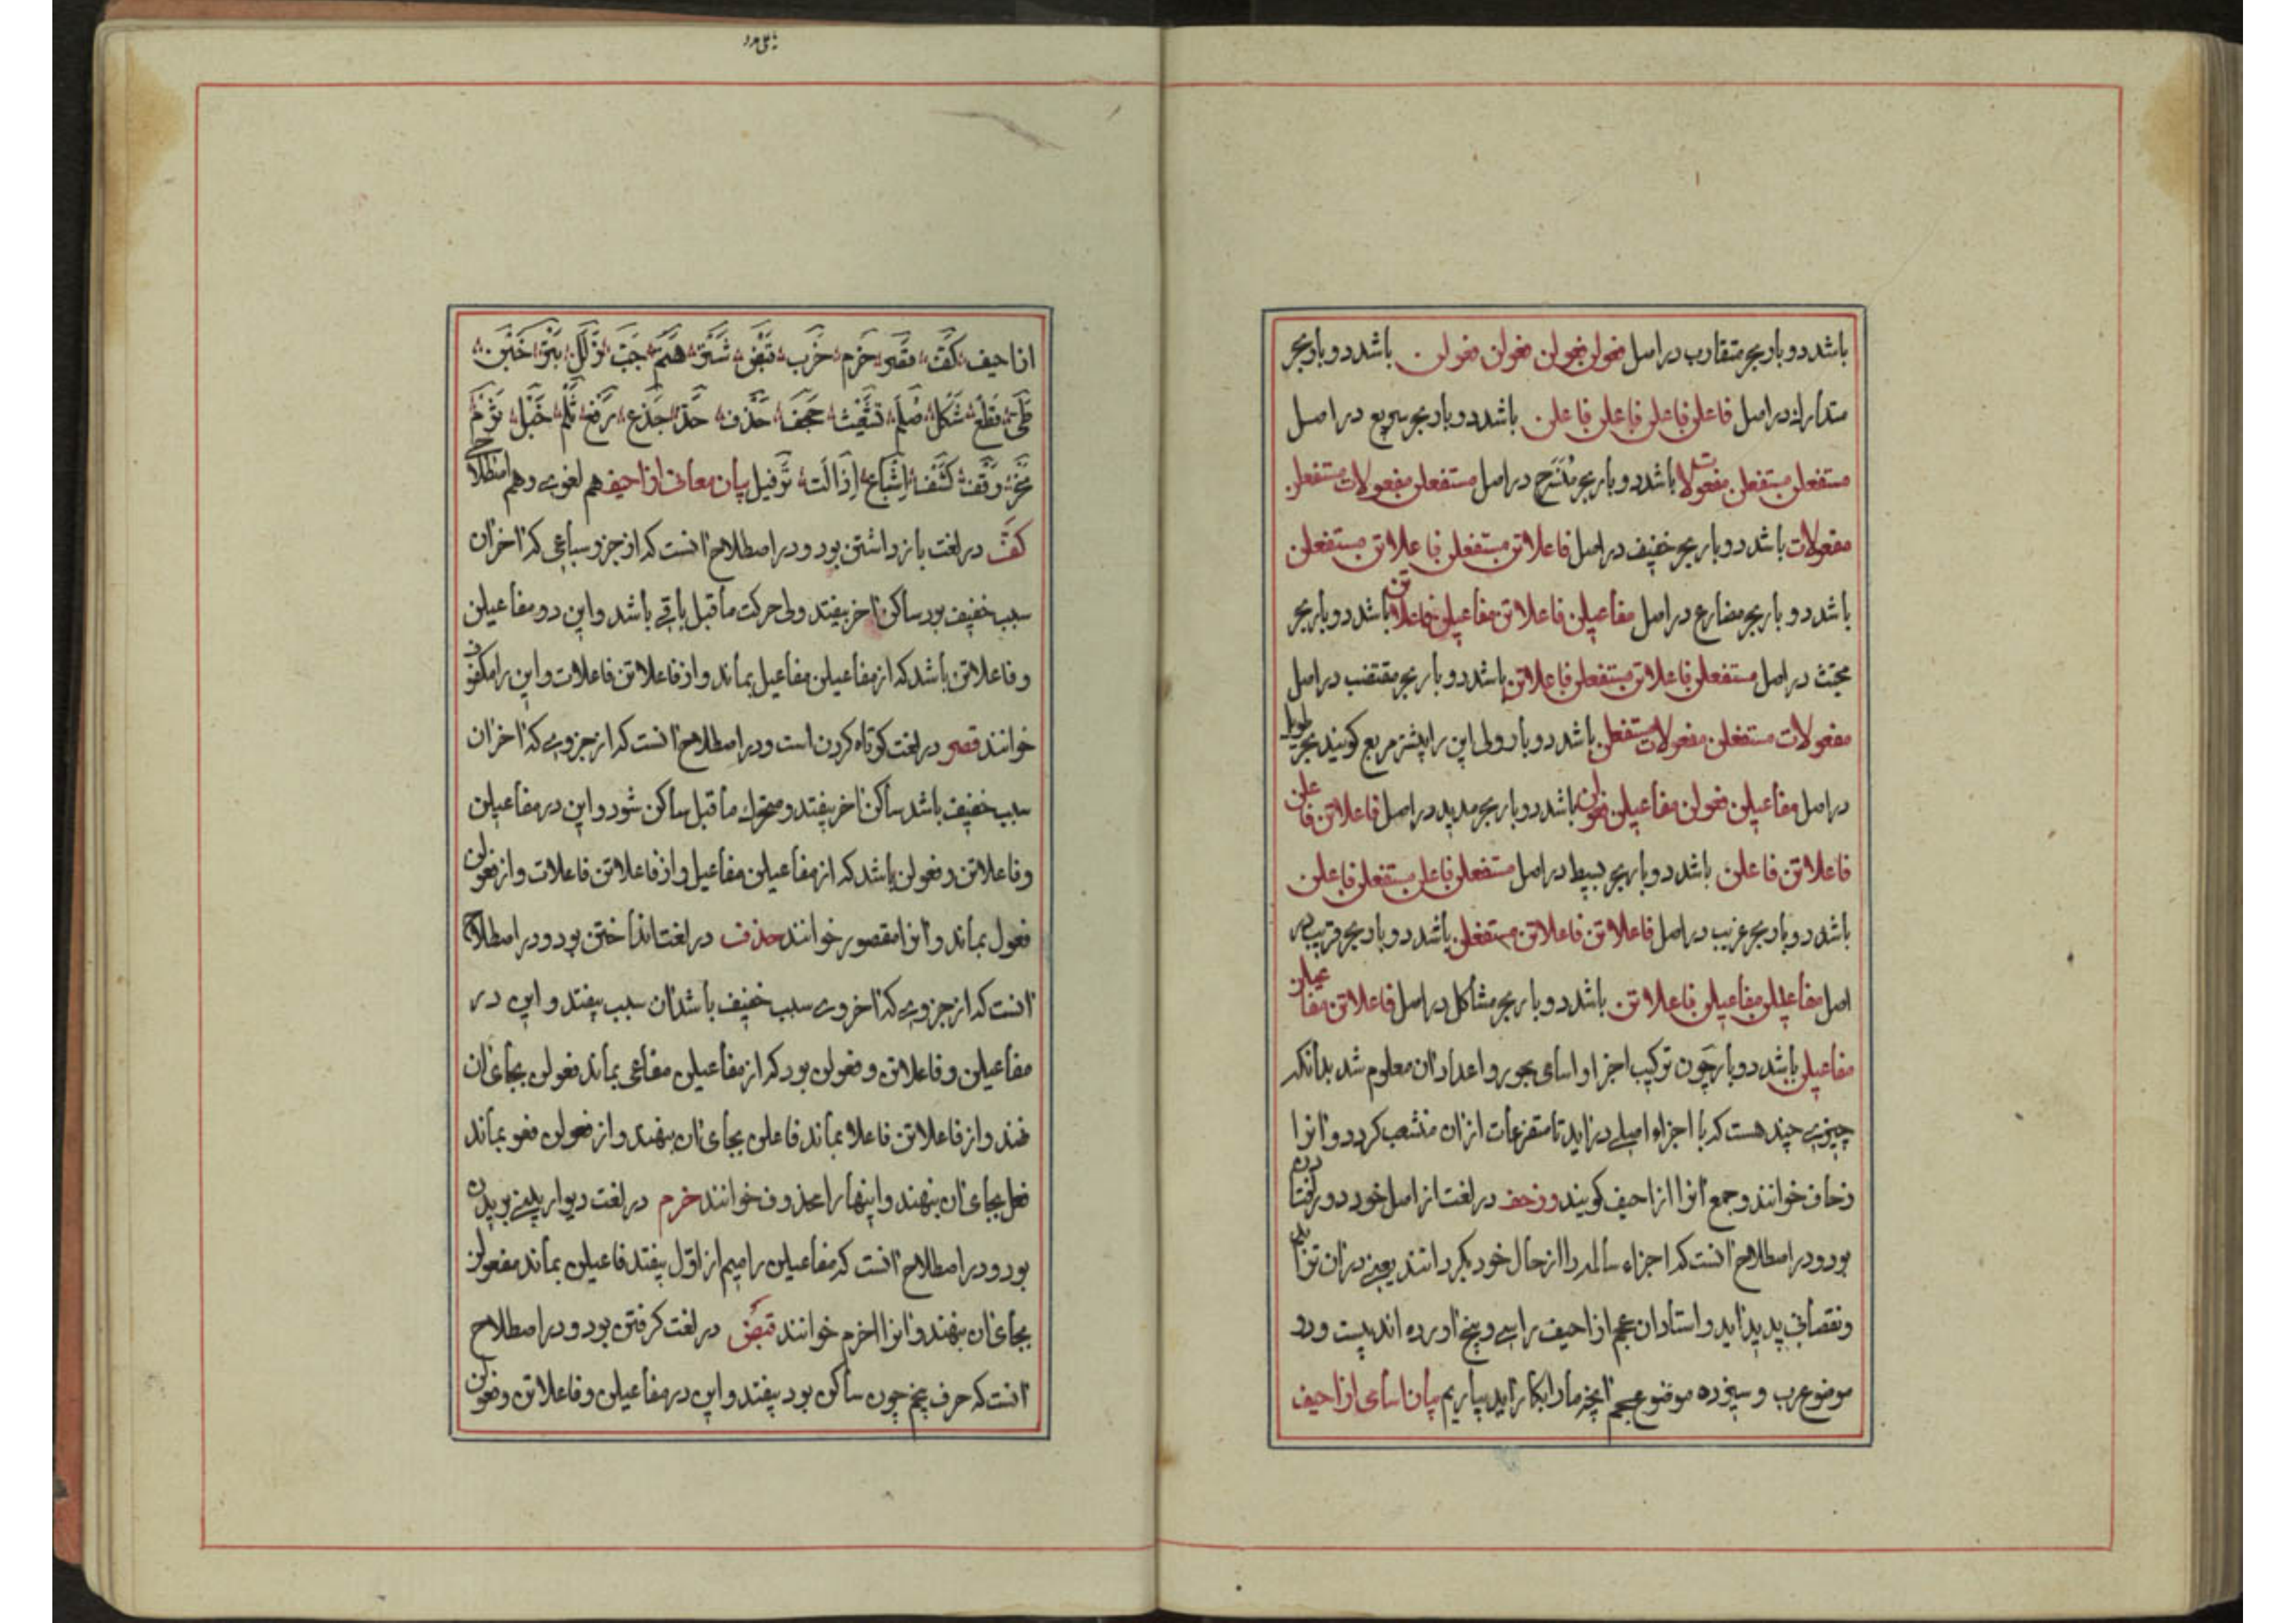 باشد دو بار و بحر متقارب در اصل فعولن فعولن فعولن فعولن باشد دو بار و بحر
متدارك در اصل فاعلن فاعلن فاعلن فاعلن باشد دو بار و بحر سریع در اصل
مستفعلن مستفعلن مفعولات باشد دو بار بحر منسرح در اصل مستفعلن مفعولات مستفعلن
مفعولات باشد دو بار بحر خفیف در اصل فاعلاتن مستفعلن فاعلاتن مستفعلن
باشد دو بار بحر مضارع در اصل مفاعیلن فاعلاتن مفاعیلن فاعلاتن باشد دو بار بحر
مجتث در اصل مستفعلن فاعلاتن مستفعلن فاعلاتن باشد دو بار بحر مقتضب در اصل
مفعولات مستفعلن مفعولات مستفعلن باشد دو بار ولی این را پیشتر مربع کویند بحر طویل
در اصل مفاعیلن فعولن مفاعیلن فعولن باشد دو بار بحر مدید در اصل فاعلاتن فاعلن
فاعلاتن فاعلن باشد دو بار بحر بسیط در اصل مستفعلن فاعلن مستفعلن فاعلن
باشد دو بار بحر غریب در اصل فاعلاتن فاعلاتن مستفعلن باشد دو بار بحر قریب در
اصل مفاعیلن مفاعیلن فاعلاتن باشد دو بار بحر مشاکل در اصل فاعلاتن مفاعیلن
مفاعیلن باشد دو بار چون ترکیب اجزا و اسای بحور و اعداد ان معلوم شد بدانکه
چیزی چند هست که با اجزاء اصلی دراید تا متفرعات ازان منشعب کردد و انرا
زحاف خوانند و جمع انرا ازاحیف کویند و زحف در لغت از اصل خود دور افتادن
بود و در اصطلاح انست که اجزاء سالم را از حال خود بکردانند یعنی دران
ونقصانی پدید اید و استادان عجم ازاحیف را سی و پنج اورده اند بیست و دو
موضوع عرب و سیزده موضوع عجم انچه مارا بکار اید بیاریم بیان اسای ازاحیف
ازاحیف کَفّ قصر خرم خرب قبض شتر هتم جَبّ زلل بتر خبن
طَیّ قطع شکل صَلم تشعیث جحف حذف حذّ جدع رفع ثلم خبل ثرم
نحر وقف کشف اشباع اذالت ترفیل بیان معانی ازاحیف هم لغوی و هم اصطلاحی
کفّ در لغت باز داشتن بود و در اصطلاح انست که از جزو سباعی که اخر ان
سبب خفیف بود ساکن اخر بیفتد ولی حرکت ماقبل باقی باشد و این در مفاعیلن
وفاعلاتن باشد که از مفاعیلن مفاعیل بماند و از فاعلاتن فاعلات و این را مکفوف
خوانند قصر در لغت کوتاه کردن است و در اصطلاح انست که از جزوی که اخر ان
سبب خفیف باشد ساکن اخر بیفتد و متحرك ماقبل ساکن شود و این در مفاعیلن
وفاعلاتن و فعولن باشد که از مفاعیلن مفاعیل و از فاعلاتن فاعلات و از فعولن
فعول بماند و انرا مقصور خوانند حذف در لغت انداختن بود و در اصطلاح
انست که از جزوی که اخر وی سبب خفیف باشد ان سبب بیفتد و این در
مفاعیلن و فاعلاتن و فعولن بود که از مفاعیلن مفاعی بماند فعولن بجای ان
نهند و از فاعلاتن فاعلا بماند فاعلن بجای ان بنهند و از فعولن فعو بماند
فعل بجای ان بنهند و اینها را محذوف خوانند خرم در لغت دیوار بینی بریدن
بود و در اصطلاح انست که مفاعیلن را میم از اوّل بیفتد فاعیلن بماند مفعولن
بجای ان بنهند و انرا اخرم خوانند قبض در لغت کرفتن بود و در اصطلاح
انست که حرف پنجم چون ساکن بود بیفتد و این در مفاعیلن و فاعلاتن و فعولن